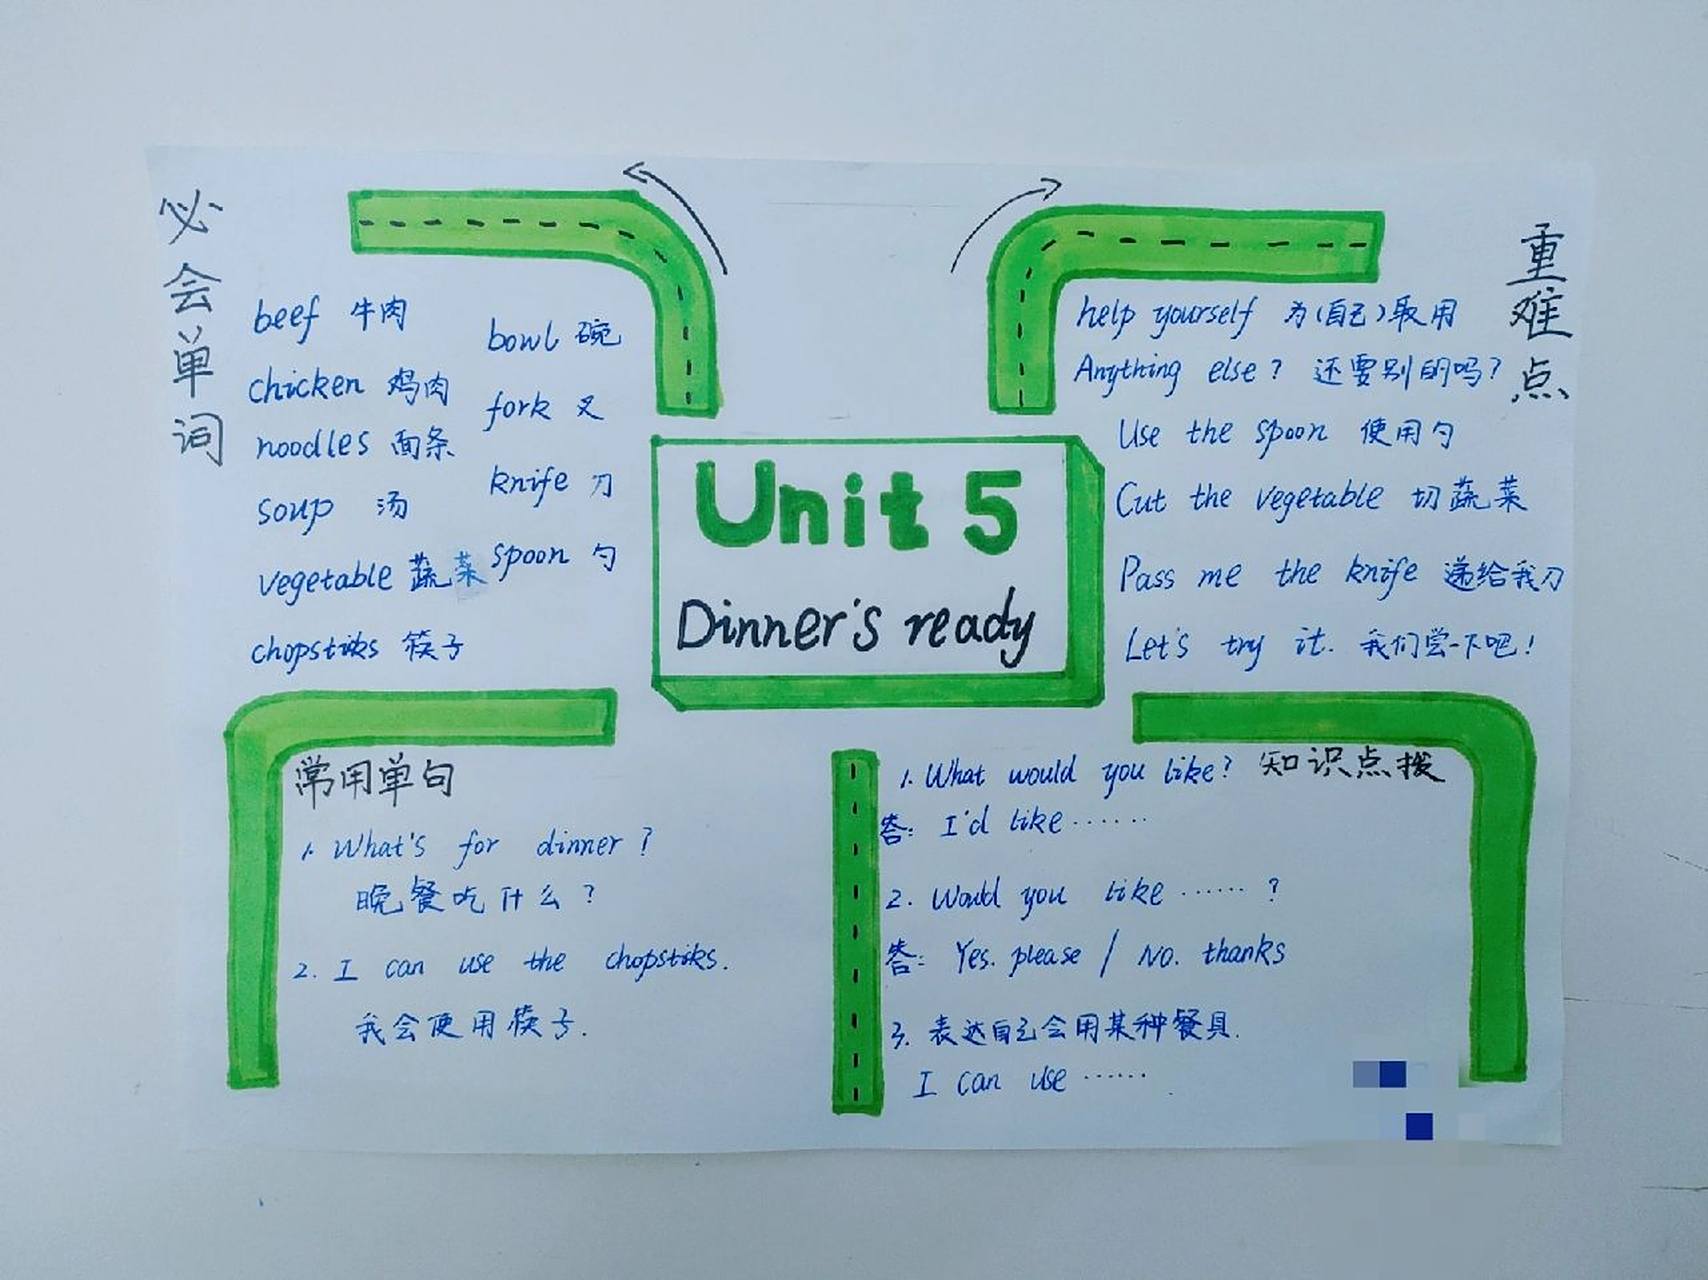 必会单词
beef 牛肉
chicken 鸡肉
noodles 面条
soup 汤
vegetable 蔬菜
chopstiks 筷子
bowl 碗
fork 叉
knife 刀
spoon 勺
Unit 5
Dinner's ready
重难点
help yourself 为(自己)取用
Anything else? 还要别的吗?
Use the spoon 使用勺
Cut the vegetable 切蔬菜
Pass me the knife 递给我刀
Let's try it. 我们尝一下吧!
常用单句
1. What's for dinner?
晚餐吃什么?
2. I can use the chopstiks.
我会使用筷子.
知识点拨
1. What would you like?
答: I'd like ······
2. Would you like ······ ?
答: Yes. please / No. thanks
3. 表达自己会用某种餐具.
I can use ······